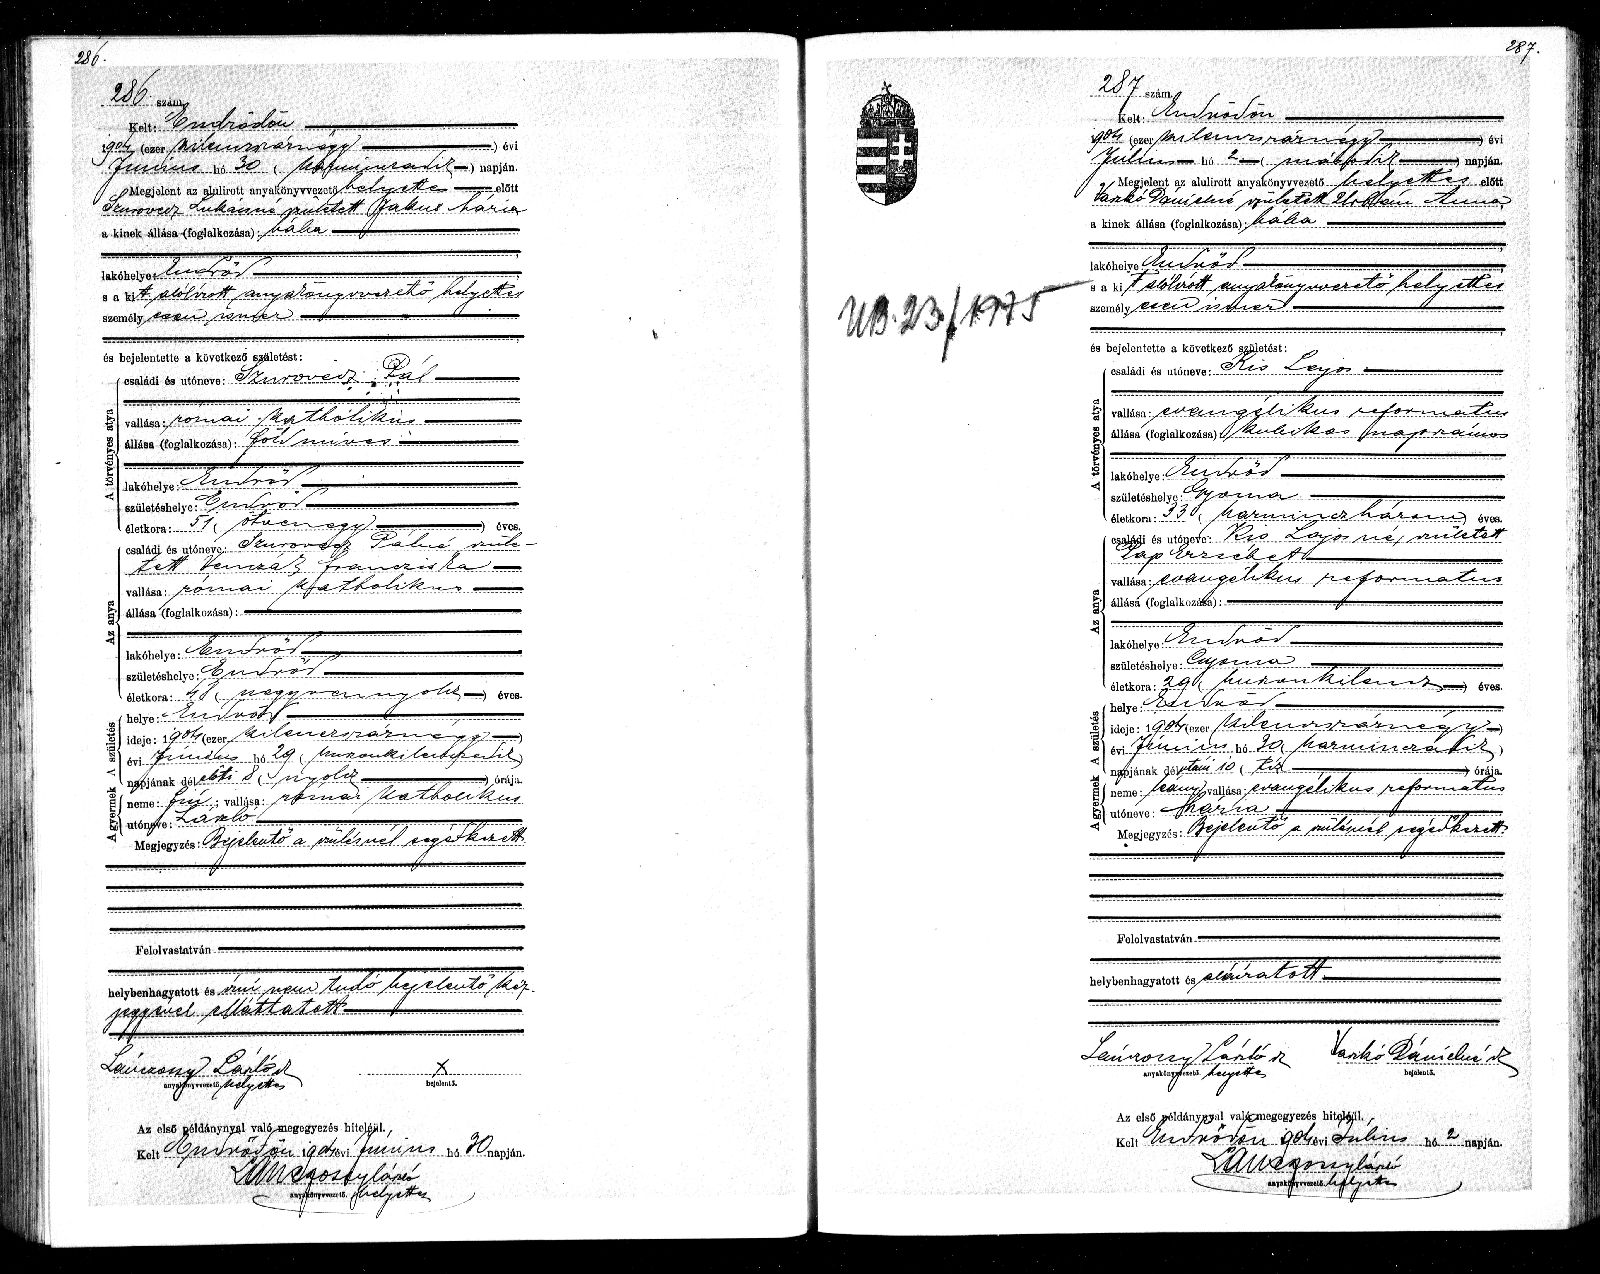 286.
286 szám.
Kelt: Endrődön
1904 (ezer kilenczszáznégy) évi
Június hó 30 (harminczadik) napján.
Megjelent az alulirott anyakönyvvezető helyettes előtt
Szurovecz Lukácsné született Jakus Mária
a kinek állása (foglalkozása): bába
lakóhelye: Endrőd
s a kit alólírott anyakönyvvezető helyettes
személyesen ismer
és bejelentette a következő születést:
A törvényes atya
családi és utóneve: Szurovecz Pál
vallása: római katholikus
állása (foglalkozása): földműves
lakóhelye: Endrőd
születéshelye: Endrőd
életkora: 51 (ötvenegy) éves.
Az anya
családi és utóneve: Szurovecz Pálné szüle-
tett Franciska
vallása: római katholikus
állása (foglalkozása):
lakóhelye: Endrőd
születéshelye: Endrőd
életkora: 48 (negyvennyolcz) éves.
A születés
helye: Endrőd
ideje: 1904 (ezer kilenczszáznégy)
évi Június hó 29 (huszonkilenczedik)
napjának délelőtti 8 (nyolcz) órája.
A gyermek
neme: fiú; vallása: római katholikus
utóneve: László
Megjegyzés: Bejelentő a szülésnél segédkezett
Felolvastatván
helybenhagyatott és írni nem tudó bejelentő kéz-
jegyével elláttatott
Lánczony László sk
anyakönyvvezető. helyettes
x
bejelentő.
Az első példánynyal való megegyezés hiteléül.
Kelt Endrődön 1904 évi Június hó 30 napján.
Lánczony László
anyakönyvvezető. helyettes
287.
287 szám.
Kelt: Endrődön
1904 (ezer kilenczszáznégy) évi
Július hó 2 (második) napján.
Megjelent az alulirott anyakönyvvezető helyettes előtt
Varkó Dánielné született Anna
a kinek állása (foglalkozása): bába
lakóhelye: Endrőd
s a kit alólírott anyakönyvvezető helyettes
személyesen ismer
UB. 23/1975
és bejelentette a következő születést:
A törvényes atya
családi és utóneve: Kis Lajos
vallása: evangélikus reformatus
állása (foglalkozása): kubikos napszámos
lakóhelye: Endrőd
születéshelye: Gyoma
életkora: 33 (harminczhárom) éves.
Az anya
családi és utóneve: Kis Lajosné, született
Pap Erzsébet
vallása: evangélikus reformatus
állása (foglalkozása):
lakóhelye: Endrőd
születéshelye: Gyoma
életkora: 29 (huszonkilencz) éves.
A születés
helye: Endrőd
ideje: 1904 (ezer kilenczszáznégy)
évi Június hó 30 (harminczadik)
napjának délutáni 10 (tíz) órája.
A gyermek
neme: leány; vallása: evangélikus reformatus
utóneve: Mária
Megjegyzés: Bejelentő a szülésnél segédkezett
Felolvastatván
helybenhagyatott és aláíratott
Lánczony László sk
anyakönyvvezető. helyettes
Varkó Dánielné sk
bejelentő.
Az első példánynyal való megegyezés hiteléül.
Kelt Endrődön 1904 évi Július hó 2 napján.
Lánczony László
anyakönyvvezető. helyettes